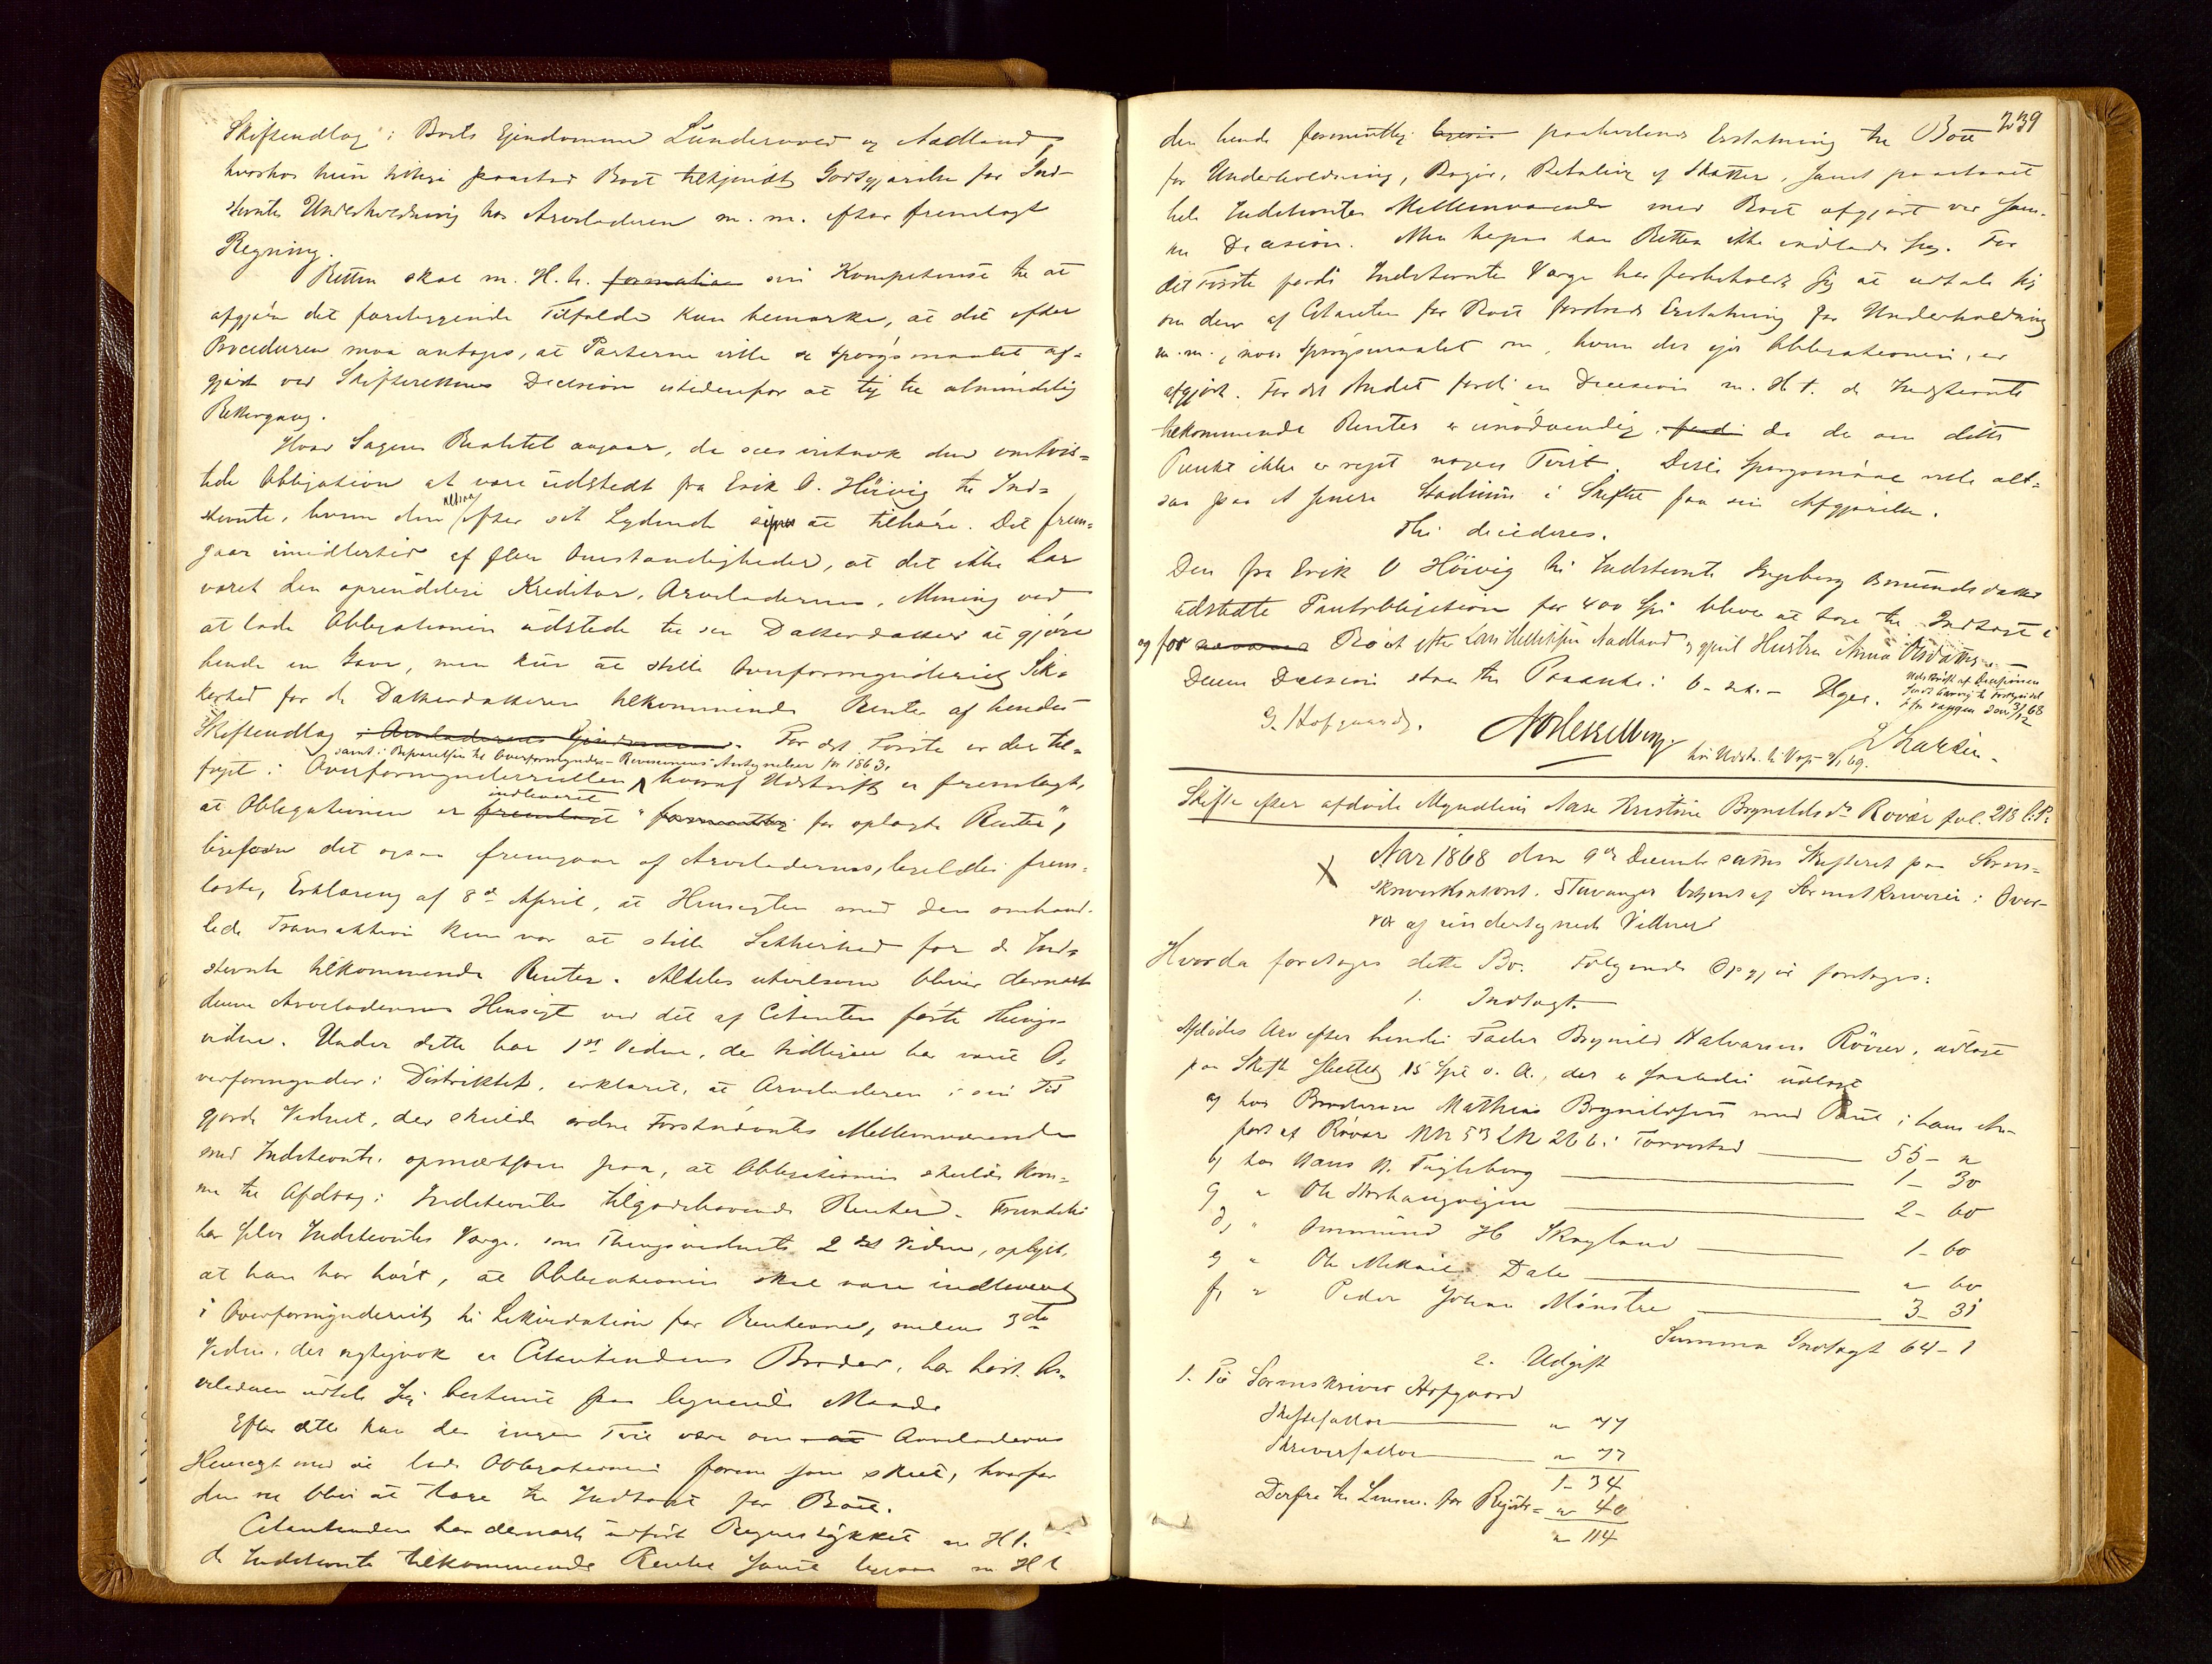 Skifteudlæg i Boets Ejendomme Lunderværd og Aadland,
hvorhos hun tillige paastod Boet tilkjendt Godtgjørelse for Ind-
stevntes Underholdning hos Arveladeren m. m. efter fremlagt
Regning.
Retten skal m. H. t. sin Kompetense til at
afgjøre det foreliggende Tilfælde kun bemærke, at det efter
Proceduren maa antages, at Parterne ville se Spørgsmaalet af-
gjort ved Skifterettens Decision istedenfor at ty til almindelig
Rettergang.
Hvad Sagens Realitet angaar, da sees vistnok den omtvis-
tede Obligation at være udstedt fra Erik O. Høivig til Ind-
stevnte, hvem den efter sit Lydende synes at tilhøre. Det frem-
gaar imidlertid af flere Omstændigheder, at det ikke har
været den oprindelige Kreditor, Arveladerens, Mening ved
at lade Obligationen udstede til sin Datterdatter at gjøre
hende en Gave, men kun at stille Overformynderiet Sik-
kerhed for de Datterdatteren tilkommende Renter af hendes
Skifteudlæg i Arveladerens Ejendomme. For det Første er der til-
samt i Besvarelsen til Overformynder-Revisionens Antegnelser for 1863,
føiet i Overformynderrullen, hvoraf Udskrift er fremlagt,
indleveret
at Obligationen er fremlagt " for oplagte Renter",
ligesom det ogsaa fremgaar af Arveladerens, ligeledes frem-
lagte, Erklæring af 8de April, at Hensigten med den omhand-
lede Transaktion kun var at stille Sikkerhed for de Ind-
stevnte tilkommende Renter. Aldeles utvilsom bliver dernæst
denne Arveladerens Hensigt ved det af Citanten førte Things-
vidne. Under dette har 1ste Vidne, der tidligere har været O-
verformynder i Distriktet, erklæret, at Arveladeren i sin Tid
gjorde Vidnet, der skulde ordne Forstnævntes Mellemværende
med Indstevnte, opmærksom paa, at Obligationen skulde kom-
me til Afdrag i Indstevntes tilgodehavende Renter. Fremdeles
har selve Indstevntes Værge, som Thingsvidnets 2det Vidne, oplyst,
at han har hørt, at Obligationen skal være indleveret
i Overformynderiet til Likvidation for Renterne, medens 3de
Vidne, der rigtignok er Citantindens Broder, har hørt Ar-
veladeren udtale sig bestemt paa lignende Maade
Efter dette kan der ingen Tvil være om at Arveladerens
Hensigt med at lade Obligationen forme som skeet, hvorfor
den vil blive at tage til Indtægt for Boet.
Citantinden har dernæst udført Regnestykket m. H. t.
de Indstevnte tilkommende Renter samt ligesaa m. H. t
239
den hende formentlig paahvilende Erstatning til Boet
for Underholdning, Røgt, Betaling af Skatter, samt paastaaet
hele Indstevntes Mellemværende med Boet afgjort ved sam-
me Decision. Men herpaa kan Retten ikke indlade sig. For
det Første fordi Indstevntes Værge har forbeholdt sig at udtale sig
om den af Citanten for Boet fordrede Erstatning for Underholdning
m. m., naar Spørgsmaalet om, hvem der eier Obligationen, er
afgjort. For det Andet fordi en Decision m. H. t. de Indstevnte
tilkommende Renter er unødvendig, fordi da der om dette
Punkt ikke er reist nogen Tvist. Disse Spørgsmaal ville alt-
saa paa et senere Stadium i Skiftet faa sin Afgjørelse.
Thi decideres.
Den fra Erik O Høivig til Indstevnte Ingeborg Asmundsdatter
udstedte Pantobligation for 400 Spd bliver at tage til Indtægt i
og for Boet efter Lars Aadland og gjenl. Hustru Anna Olsdatter.
Denne Decision staar til Paaanke i 6 – sex – Uger.
Udskrift af Decisionen
G. Hofgaard. L Larsen.
Skifte efter afdøde Myndling Aase Kristine Brynildsdr Rovær fol. 218 l. P.
Aar 1868 den 9de December sattes Skifteret paa Soren-
skriverkontoret i Stavanger betjent af Sorenskriveren i Over-
vær af undertegnede Vidner
Hvorda foretages dette Bo. Følgende Opgjør foretages:
1. Indtægt.
Afdødes Arv efter hendes Fader Brynild Halvorsen Røvær, udlagt
paa Skifte sluttet 15 Spd o. A., der er saaledes udlagt
a, hos Broderen Mathias Brynildsen med Pant i hans An-
part af Rövær MN 53 LN 266 i Torvestad 55 – "
b, hos Hans N. Fugleberg 1 – 30
c, " Ole Storhaugvigen 2 – 60
d, " Ommund H Skogland 1 – 60
e, " Ole Mikael Dale " 60
f, " Peder Johan Mönstre 3 – 31
Summa Indtægt 64 – 1
2. Udgift
1. Til Sorenskriver Hofgaard
Skiftesallar " 77
Skriversallar " 77
1 – 34
Derfra til Lensm. for Registr. " 40
" 114